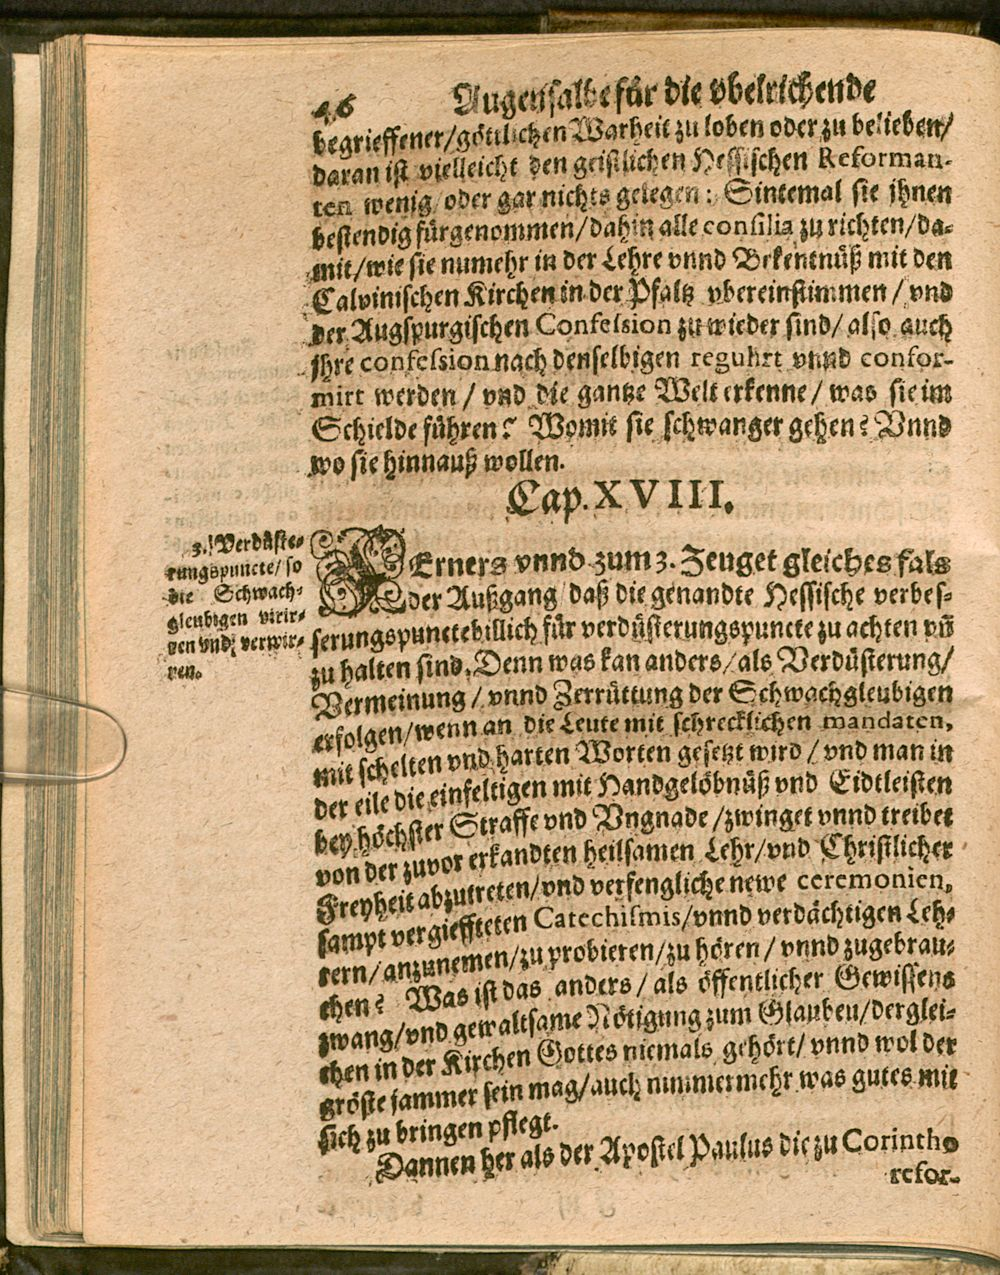 46 Augensalbe für die vbelriechende
begrieffener/göttlichen Warheit zu loben oder zu belieben/
daran ist vielleicht den geistlichen Hessischen Reforman-
ten wenig/oder gar nichts gelegen: Sintemal sie ihnen
bestendig fürgenommen/dahin alle consilia zu richten/da-
mit/wie sie numehr in der Lehre vnnd Bekentnüß mit den
Calvinischen Kirchen in der Pfaltz vbereinstimmen/vnd
der Augspurgischen Confession zu wieder sind/also auch
jhre confession nach denselbigen regulirt vnnd confor-
mirt werden/vnd die gantze Welt erkenne/was sie im
Schielde führen? Womit sie schwanger gehen? Vnnd
wo sie hinnauß wollen.
Cap. XVIII.
3. Verdüste-
rungspuncte/so
die Schwach-
gleubigen virir-
ren vnd verwir-
ren.
FErners vnnd zum 3. Zeuget gleiches fals
der Außgang/daß die genandte Hessische verbes-
serungspuncte billich für verdüsterungspuncte zu achten vñ
zu halten sind. Denn was kan anders/als Verdüsterung/
Vermeinung/vnnd Zerrüttung der Schwachgleubigen
erfolgen/wenn an die Leute mit schrecklichen mandaten,
mit schelten vnd harten Worten gesetzt wird/vnd man in
der eile die einfeltigen mit Handgelöbnüß vnd Eidtleisten
bey höchster Straffe vnd Vngnade/zwinget vnnd treibet
von der zuvor erkandten heilsamen Lehr/vnd Christlicher
Freyheit abzutreten/vnd verfengliche newe ceremonien,
sampt vergieffteten Catechismis/vnnd verdächtigen Leh-
rern/anzunemen/zu probieren/zu hören/vnnd zugebrau-
chen? Was ist das anders/als öffentlicher Gewissens
zwang/vnd gewaltsame Nötigung zum Glauben/derglei-
chen in der Kirchen Gottes niemals gehört/vnnd wol der
gröste jammer sein mag/auch nimmermehr was gutes mit
sich zu bringen pflegt.
Dannen her als der Apostel Paulus die zu Corintho
refor-